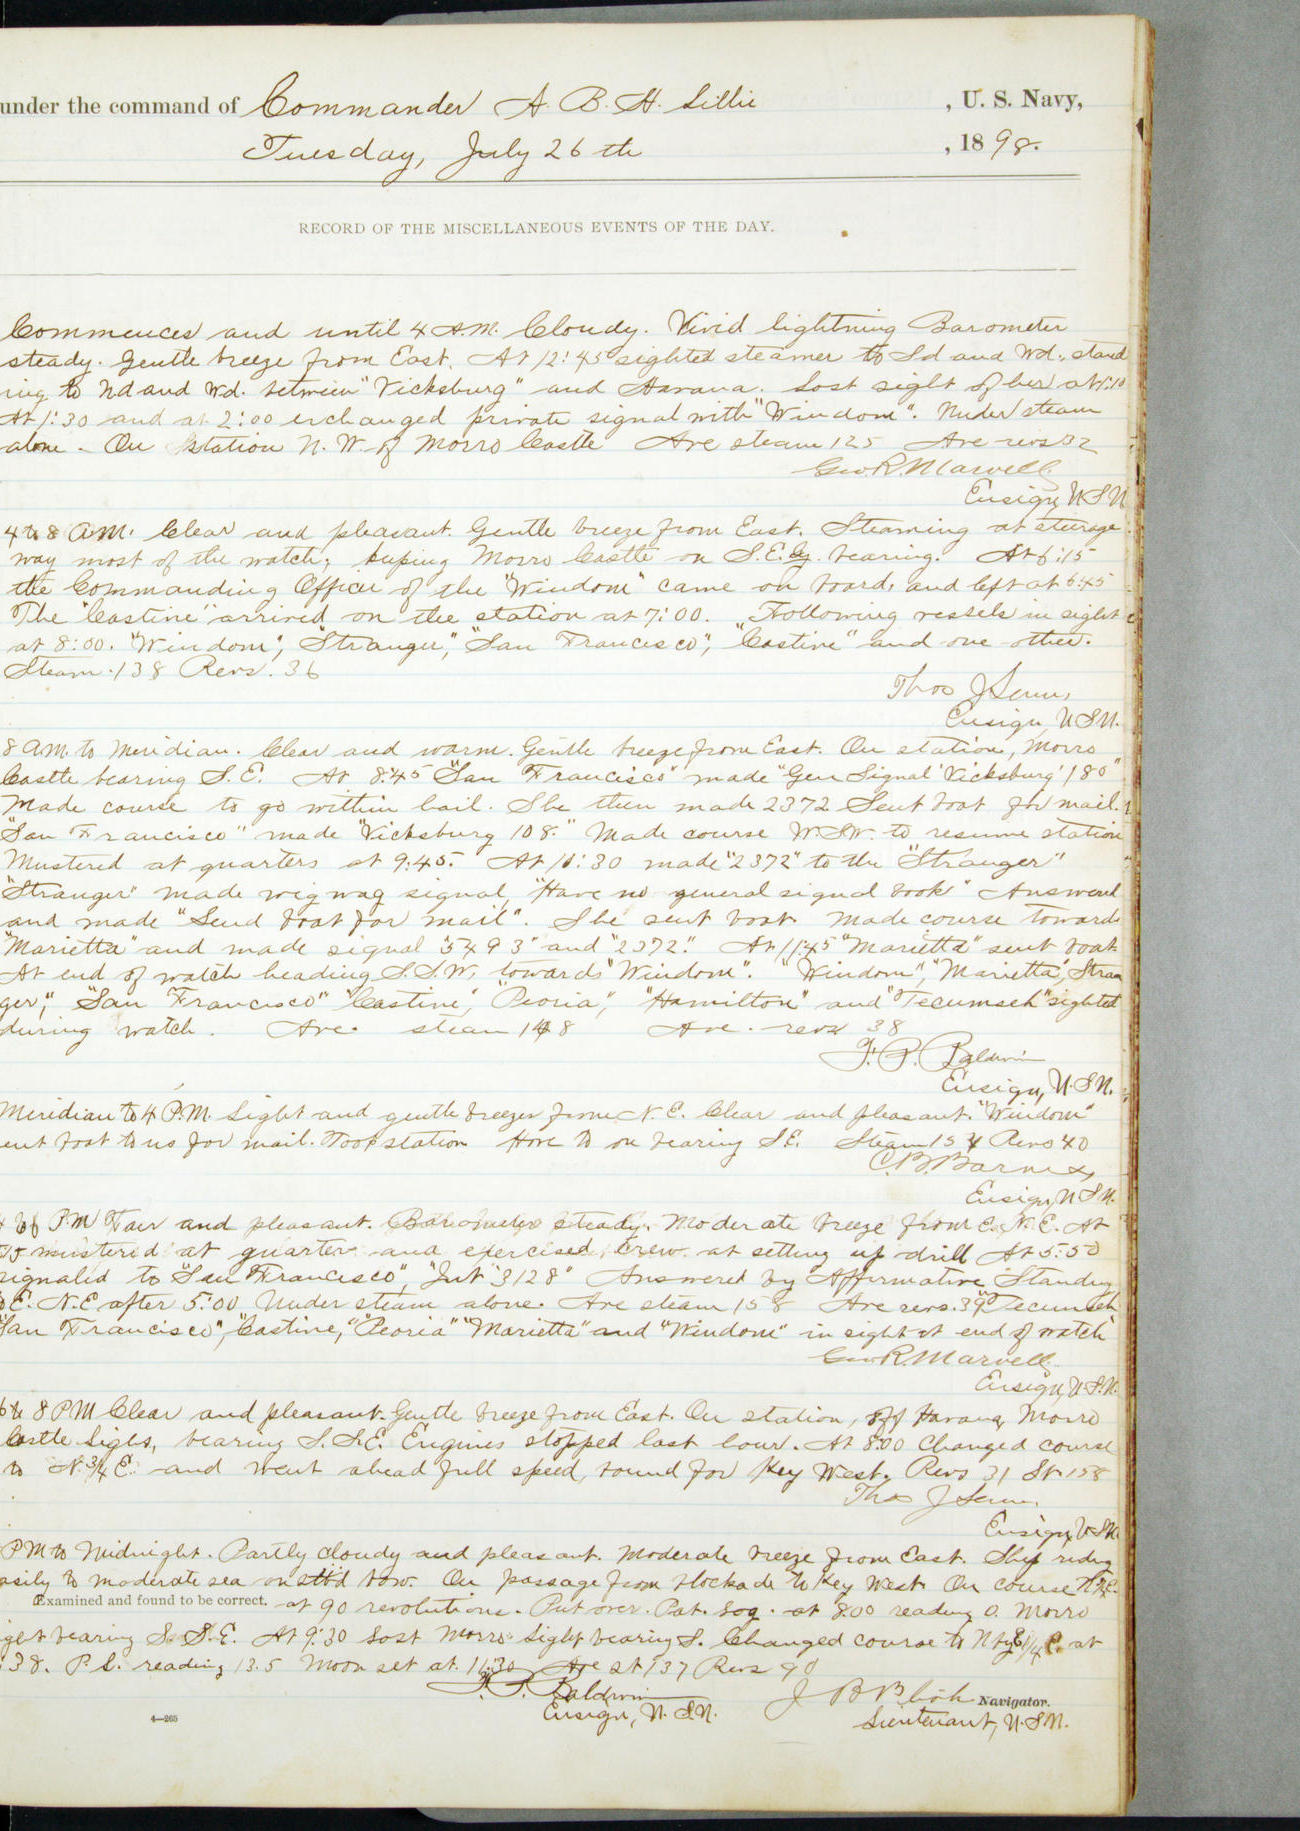 under the command of Commander A. B. H. Lillie , U. S. Navy,
Tuesday, July 26th , 1898.
RECORD OF THE MISCELLANEOUS EVENTS OF THE DAY.
Commences and until 4 A.M. Cloudy. Vivid lightning Barometer
steady. Gentle breeze from East. At 12:45 sighted steamer to Sd and Wd., stand
ing to Nd and Wd. between "Vicksburg" and Havana. Lost sight of her at 1:10
At 1:30 and at 2:00 exchanged private signal with "Windom". Under steam
alone. On station N.W. of Morro Castle Ave steam 125 Ave revs 32
Geo R. Marvell
Ensign, U.S.N.
4 to 8 A.M. Clear and pleasant. Gentle breeze from East. Steaming at steerage
way most of the watch, keeping Morro Castle on S.E. bearing. At 6:15
the Commanding Officer of the "Windom" came on board, and left at 6:45
The "Castine" arrived on the station at 7:00. Following vessels in sight
at 8:00. "Windom", "Stranger", "San Francisco", "Castine" and one other.
Steam 138 Revs. 36
Thos J Senn,
Ensign, U.S.N.
8 A.M. to Meridian. Clear and warm. Gentle breeze from East. On station, Morro
Castle bearing S.E. At 8:45 "San Francisco" made "Gen Signal 'Vicksburg' 180"
Made course to go within hail. She then made 2372 Sent boat for mail.
"San Francisco" made "Vicksburg 108." Made course W.S.W. to resume station
Mustered at quarters at 9:45. At 10:30 made "2372" to the "Stranger"
"Stranger" made wigwag signal, "Have no general signal book" Answered
and made "Send boat for mail". She sent boat. Made course towards
"Marietta" and made signal "5493" and "2372." At 11:45 "Marietta" sent boat.
At end of watch heading S.S.W. towards "Windom". "Windom", "Marietta", "Stran
ger", "San Francisco" "Castine", "Peoria", "Hamilton" and "Tecumseh" sighted
during watch. Ave. steam 148 Ave. revs 38
F. P. Baldwin
Ensign, U.S.N.
Meridian to 4 P.M. Light and gentle breezes from N.E. Clear and pleasant. "Windom"
ent boat to us for mail. Took station Hove to on bearing S.E. Steam 154 Revs 40
C. B. Barnes,
Ensign, U.S.N.
4 to 6 P.M. Fair and pleasant. Barometer steady. Moderate breeze from E.N.E. At
mustered at quarters and exercised crew at setting up drill At 5:50
signaled to "San Francisco", "Int 3128" Answered by "Affirmative" Standing
E. N.E after 5:00 Under steam alone. Ave steam 158 Ave revs. 39 "Tecumseh
San Francisco", "Castine," "Peoria" "Marietta" and "Windom" in sight at end of watch
Geo R. Marvell
Ensign, U.S.N.
6 to 8 PM Clear and pleasant. Gentle breeze from East. On station, off Havana, Morro
Castle Light, bearing S.S.E. Engines stopped last hour. At 8:00 Changed course
to N. 3/4 E. and went ahead full speed, bound for Key West. Revs 31 St. 158
Thos J Senn,
Ensign, U.S.N.
PM to Midnight. Partly cloudy and pleasant. Moderate breeze from East. Ship riding
easily to moderate sea on stb'd bow. On passage from blockade to Key West. On course
Examined and found to be correct. at 90 revolutions. Put over Pat. Log. at 8:00 reading 0. Morro
ight bearing S.S.E. At 9:30 Lost Morro Light bearing S. Changed course to N by E 1/4 E. at
:38. P.L. reading 13.5 Moon set at 11:30 Ave St 137 Revs 90
F. P. Baldwin
Ensign, U.S.N.
J B Blish Navigator.
Lieutenant, U.S.N.
4—265